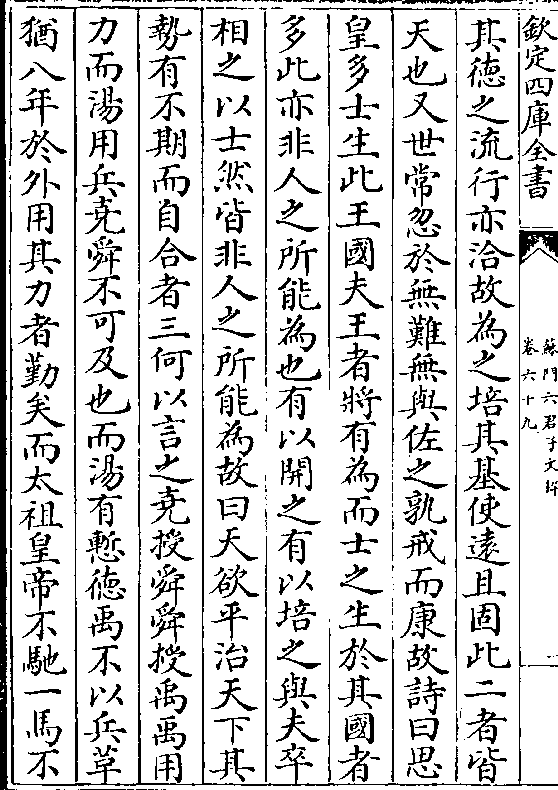 欽定四庫全書
蘇門六君子文粹
卷六十九
一
其德之流行亦洽故為之培其基使遠且固此二者皆
天也又世常忽於無難無與佐之孰戒而康故詩曰思
皇多士生此王國夫王者將有為而士之生於其國者
多此亦非人之所能為也有以開之有以培之與夫卒
相之以士然皆非人之所能為故曰天欲平治天下其
勢有不期而自合者三何以言之堯授舜舜授禹禹用
力而湯用兵堯舜不可及也而湯有慙德禹不以兵草
猶八年於外用其力者勤矣而太祖皇帝不馳一馬不